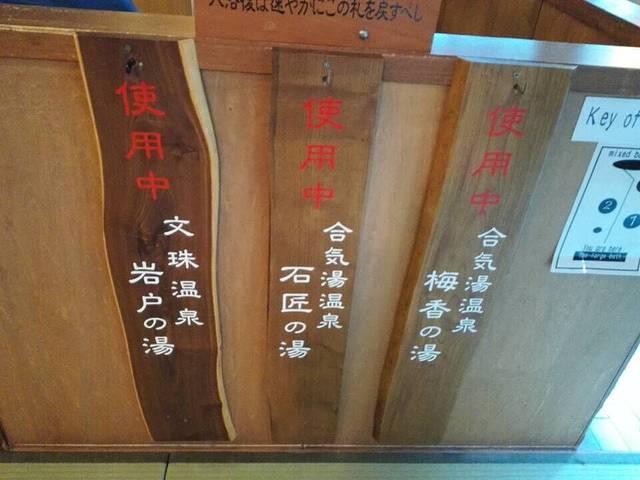 入浴後は速やかにこの札を戻すべし
使用中
文珠温泉
岩戸の湯
使用中
合気湯温泉
石匠の湯
使用中
合気湯温泉
梅香の湯
Key of
mixed b
2
1
You are here